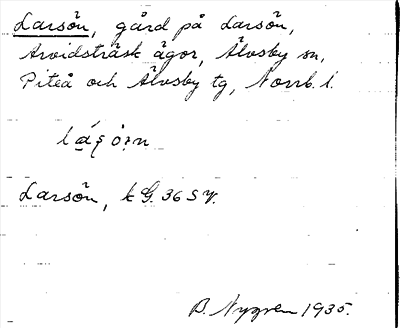 Larsön, gård på Larsön,
Arvidsträsk ägor, Älvsby sn,
Piteå och Älvsby tg, Norrb. l.
Larsön, kG. 36 SV.
B. Nygren 1935.